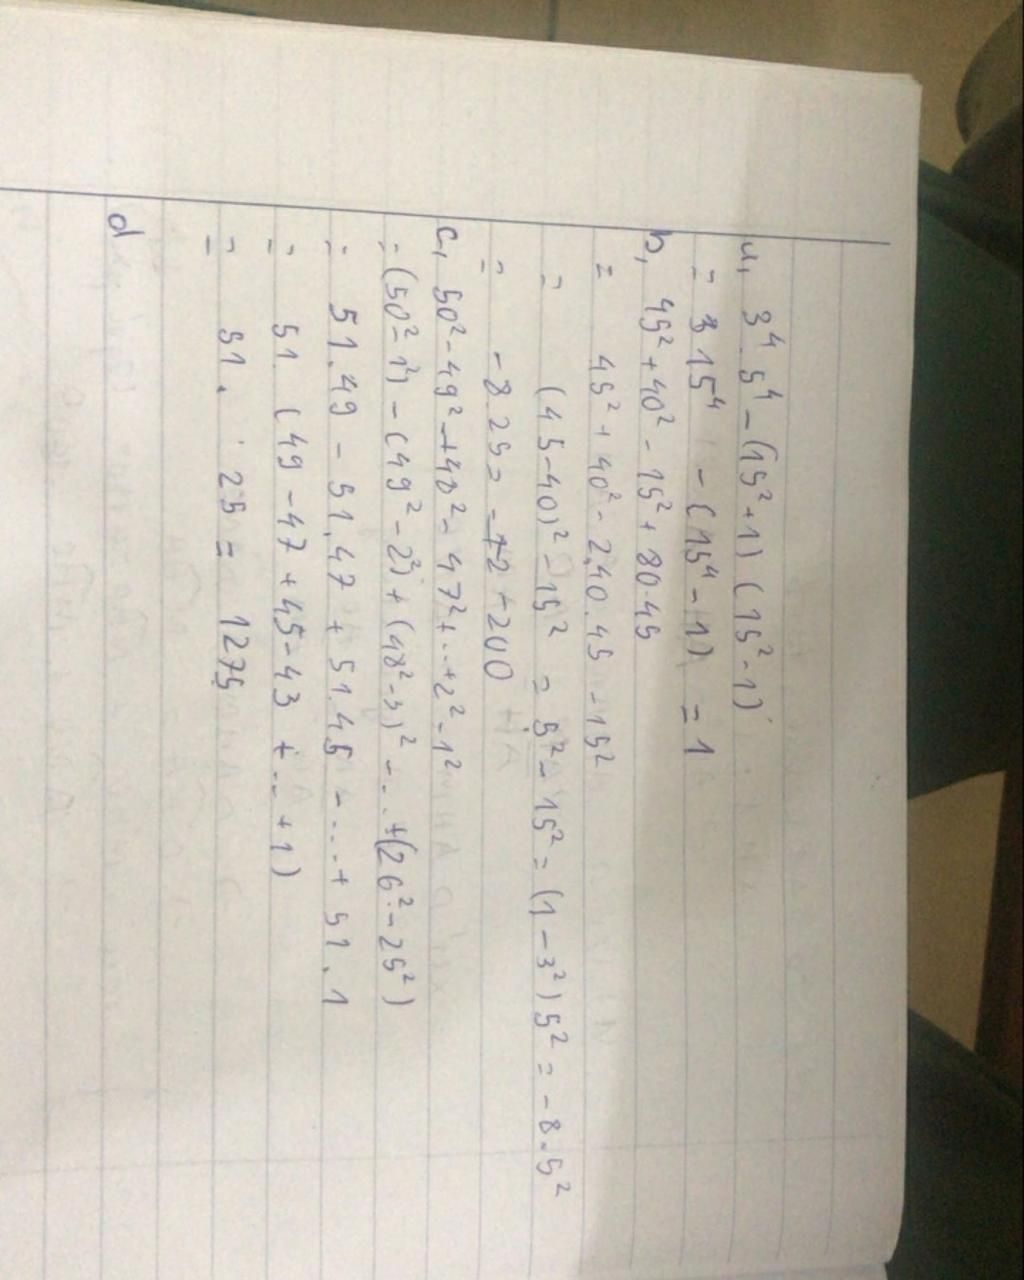 a, 3⁴.5⁴-(15²+1)(15²-1)
= 15⁴ - (15⁴-1) = 1
b, 45²+40²-15²+80.45
= 45²+40²-2.40.45-15²
= (45-40)²-15² = 5²-15² = (1-3²)5² = -8.5²
= -8.25= -200
c, 50²-49²+48²-47²+...+2²-1²
= (50²-1²)-(49²-2²)+(48²-3)²-...+(26²-25²)
= 51.49 - 51.47 + 51.45 -...+ 51.1
= 51.(49-47+45-43+...+1)
= 51. 25 = 1275
d